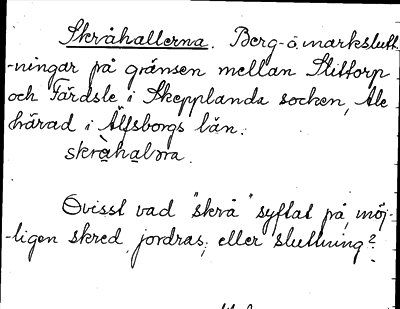 Skråhallerna. Berg- o. markslutt-
-ningar på gränsen mellan Slittorp
och Färdsle i Skepplanda socken, Ale
härad i Älfsborgs län.
skràhalɔra.
Ovisst vad "skrå" syftat på, möj-
-ligen skred, jordras, eller sluttning?